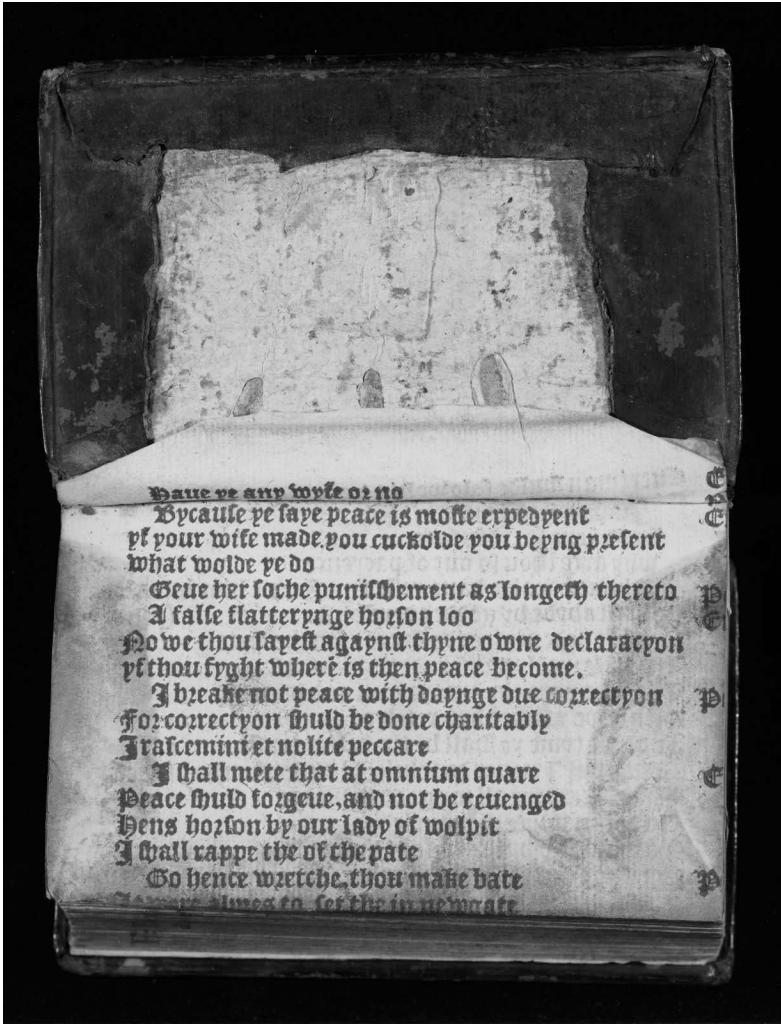 Haue ye any wyfe or no E
Bycause ye saye peace is moste expedyent E
yf your wife made you cuckolde you beyng present
what wolde ye do
Geue her soche punisshement as longeth thereto P
A false flatterynge horson loo E
Nowe thou sayest agaynst thyne owne declaracyon
yf thou fyght where is then peace become.
I breake not peace with doynge due correctyon P
For correctyon shuld be done charitably
Irascemini et nolite peccare
I shall mete that at omnium quare E
Peace shuld forgeue, and not be reuenged
Hens horson by our lady of wolpit
I shall rappe the of the pate
Go hence wretche, thou make bate P
It were almes to set the in newgate